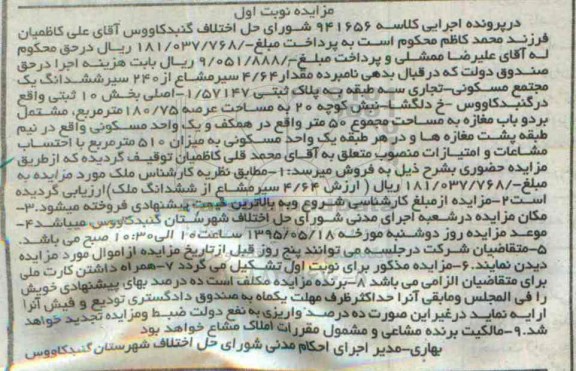 مزایده نوبت اول
در پرونده اجرایی کلاسه ۹۴۱۶۵۶ شورای حل اختلاف گنبدکاووس آقای علی کاظمیان
فرزند محمد کاظم محکوم است به پرداخت مبلغ-/۱۸۱/۰۳۷/۷۶۸ ریال در حق محکوم
له آقای علیرضا ممشلی و پرداخت مبلغ-/۹/۰۵۱/۸۸۸ ریال بابت هزینه اجرا در حق
صندوق دولت که در قبال بدهی نامبرده مقدار ۴/۶۴ سیر مشاع از ۲۴۰ سیر ششدانگ یک
مجتمع مسکونی-تجاری سه طبقه به پلاک ثبتی ۱/۵۷۱۴۷-اصلی بخش ۱۰ ثبتی واقع
در گنبدکاووس -خ دلگشا-نبش کوچه ۲۰ به مساحت عرصه ۱۸۰/۷۵ متر مربع، مشتمل
بر دو باب مغازه به مساحت مجموع ۵۰ متر واقع در همکف و یک واحد مسکونی واقع در نیم
طبقه پشت مغازه ها و در هر طبقه یک واحد مسکونی به میزان ۵۱۰ متر مربع با احتساب
مشاعات و امتیازات منصوب متعلق به آقای محمد قلی کاظمیان توقیف گردیده که از طریق
مزایده حضوری بشرح ذیل به فروش میرسد:۱-مطابق نظریه کارشناس ملک مورد مزایده به
مبلغ-/۱۸۱/۰۳۷/۷۶۸ ریال ( ارزش ۴/۶۴ سیر مشاع از ششدانگ ملک)ارزیابی گردیده
است۲-مزایده از مبلغ کارشناسی شروع و به بالاترین قیمت پیشنهادی فروخته میشود.۳-
مکان مزایده در شعبه اجرای مدنی شورای حل اختلاف شهرستان گنبدکاووس میباشد۴-
موعد مزایده روز دوشنبه مورخه ۱۳۹۵/۰۵/۱۸ ساعت ۱۰ الی ۱۰:۳۰ صبح می باشد.
۵-متقاضیان شرکت در جلسه می توانند پنج روز قبل از تاریخ مزایده از اموال مورد مزایده
دیدن نمایند.۶-مزایده مذکور برای نوبت اول تشکیل می گردد ۷-همراه داشتن کارت ملی
برای متقاضیان الزامی می باشد ۸-برنده مزایده مکلف است ده درصد بهای پیشنهادی خویش
را فی المجلس و مابقی آنرا حداکثر ظرف مهلت یکماه به صندوق دادگستری تودیع و فیش آنرا
ارایه نماید در غیر این صورت ده درصد واریزی به نفع دولت ضبط و مزایده تجدید خواهد
شد.۹-مالکیت برنده مشاعی و مشمول مقررات املاک مشاع خواهد بود
بهاری-مدیر اجرای احکام مدنی شورای حل اختلاف شهرستان گنبدکاووس